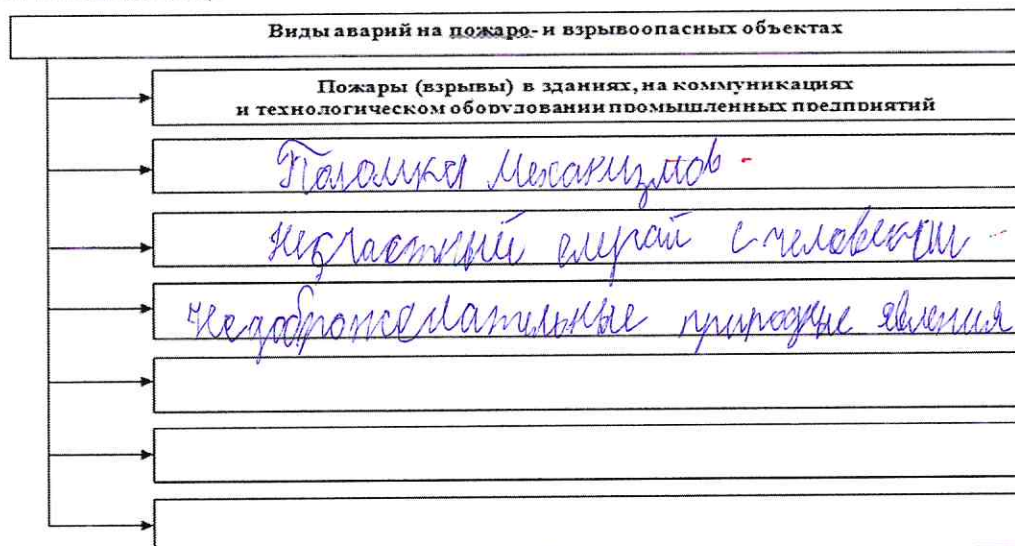 Виды аварий на пожаро- и взрывоопасных объектах
Пожары (взрывы) в зданиях, на коммуникациях
и технологическом оборудовании промышленных предприятий
Поломка механизмов -
Несчастный случай с человеком -
Недоброжелательные природные явления